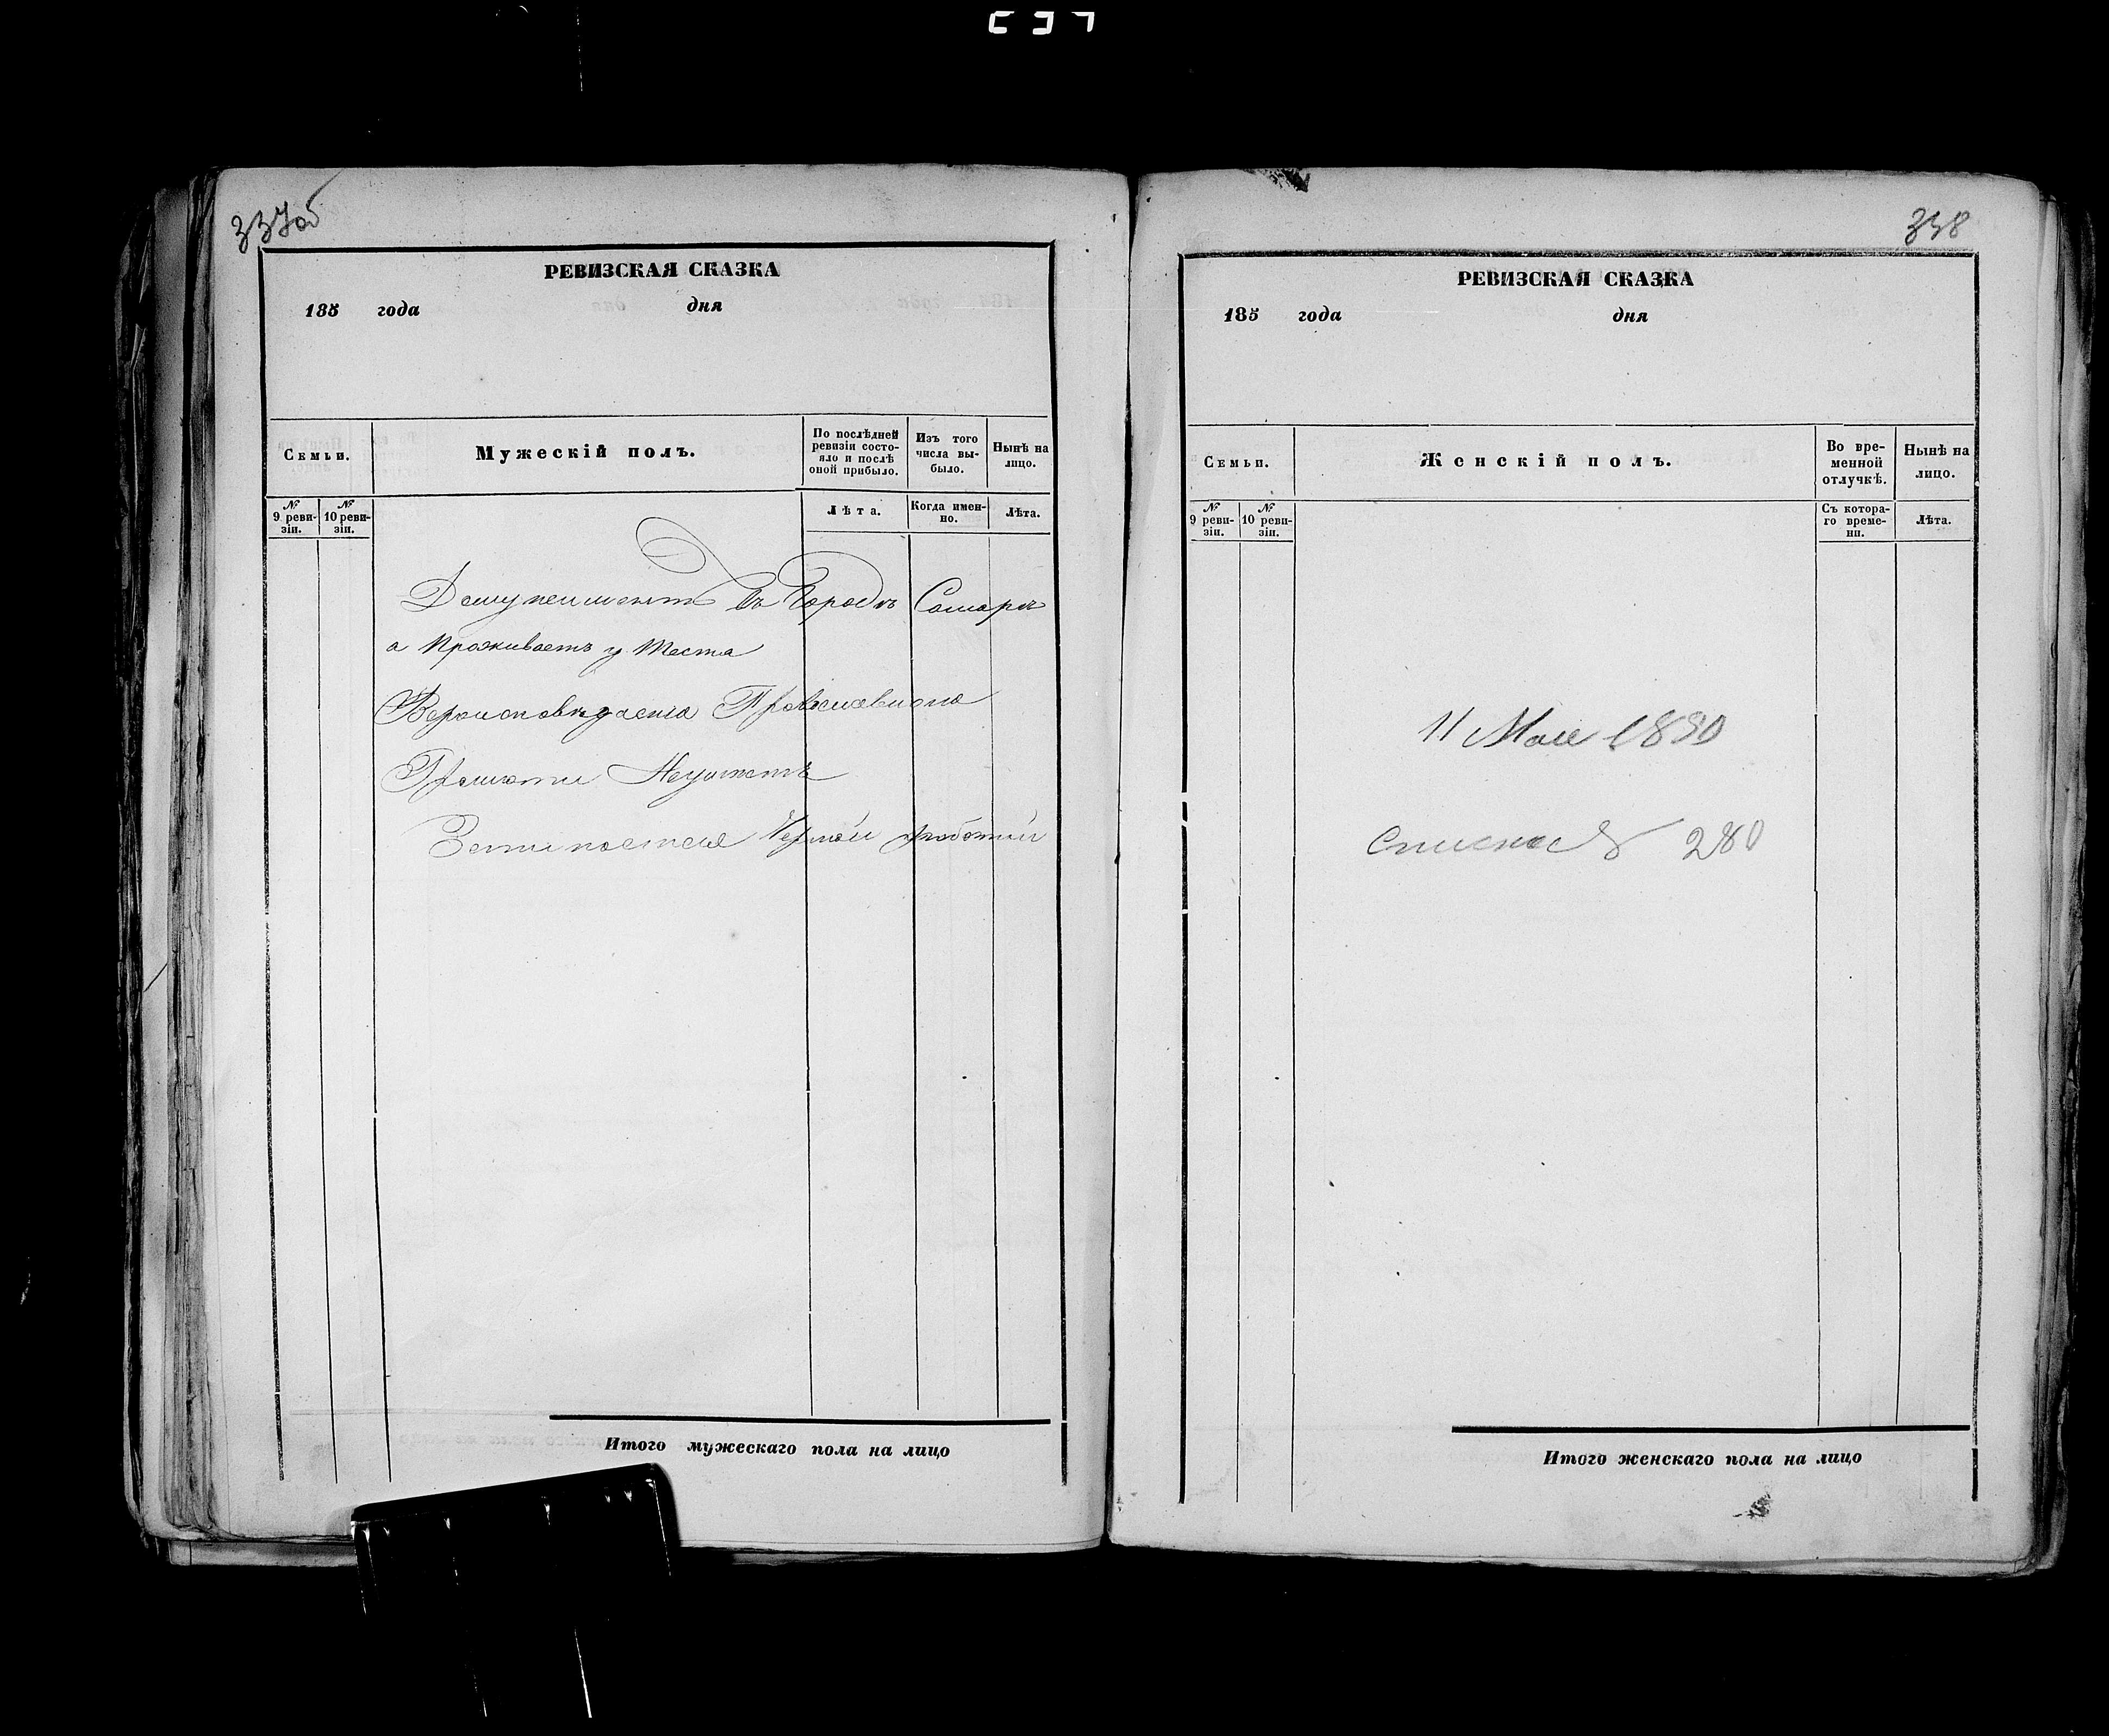 337об
РЕВИЗСКАЯ СКАЗКА
185 года дня
Семьи.
Мужескій полъ.
По послѣдней ревизіи состояло и послѣ оной прибыло.
Изъ того числа выбыло.
Нынѣ на лицо.
№ 9 ревизіи.
№ 10 ревизіи.
Лѣта.
Когда именно.
Лѣта.
въ Городѣ Самарѣ
а Проживаетъ у Теста
Вероисповѣданія
Грамоти Неумѣетъ
Итого мужескаго пола на лицо
338
РЕВИЗСКАЯ СКАЗКА
185 года дня
Семьи.
Женскій полъ.
Во временной отлучкѣ.
Нынѣ на лицо.
№ 9 ревизіи.
№ 10 ревизіи.
Съ котораго времени.
Лѣта.
11 Мая
280
Итого женскаго пола на лицо